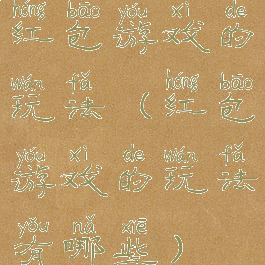 hóng bāo yóu xì de
红包游戏的
wán fǎ （hóng bāo
玩法（红包
yóu xì de wán fǎ
游戏的玩法
yǒu nǎ xiē
有哪些）